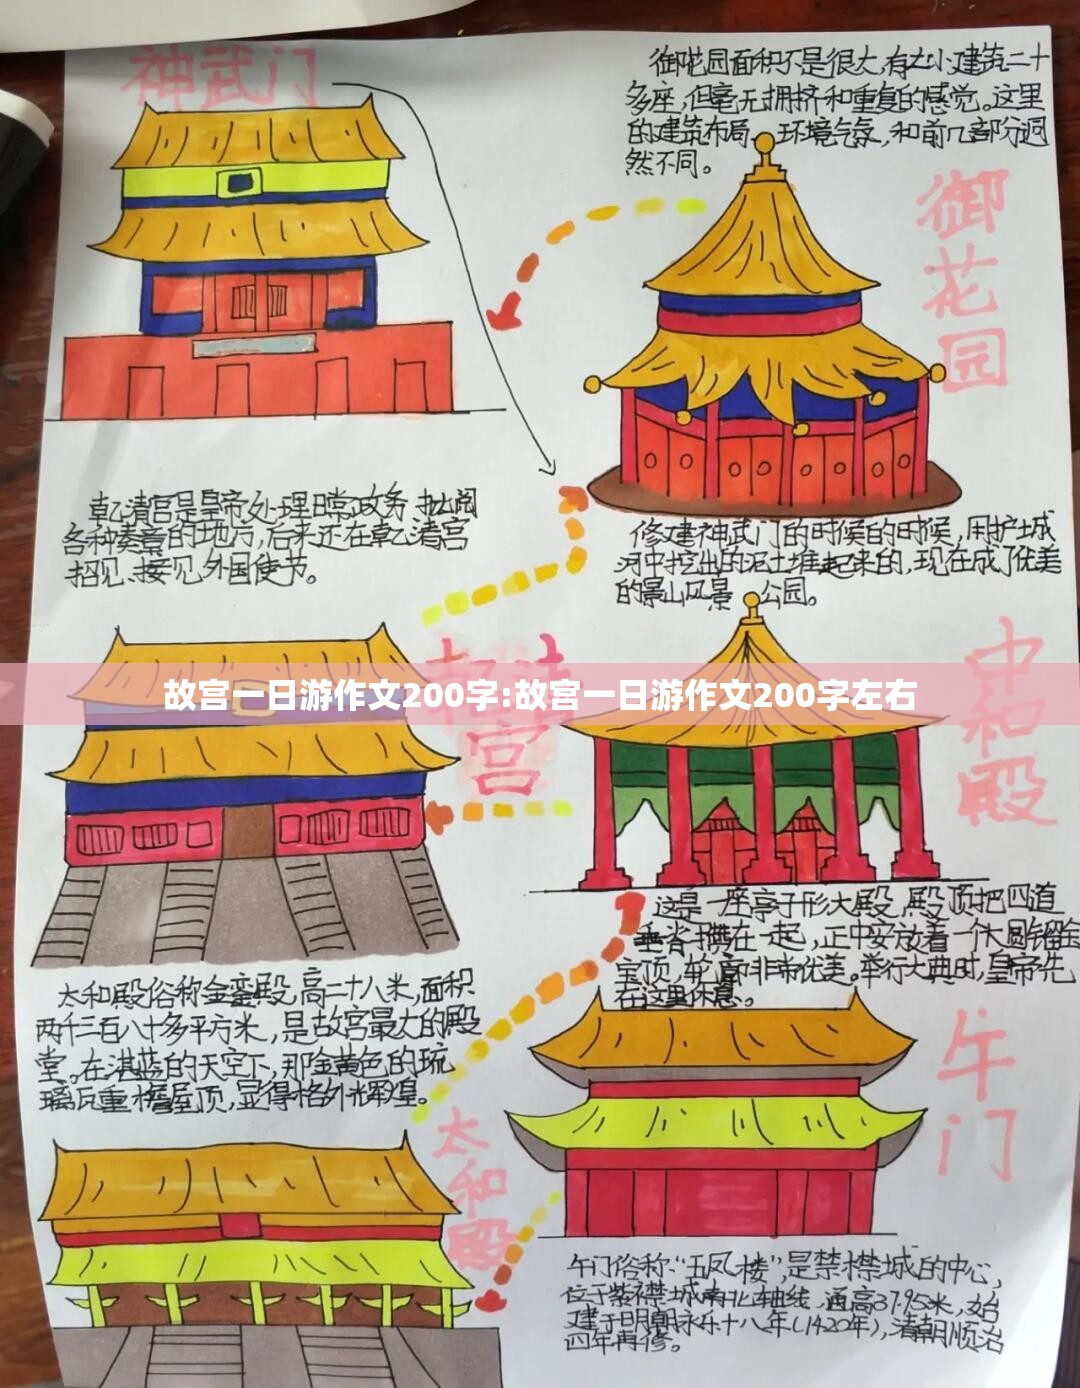 神武门
御花园面积不是很大,有大小建筑二十
多座,但毫无拥挤和重复的感觉。这里
的建筑布局,环境气象,和前几部分迥
然不同。
御花园
乾清宫是皇帝处理日常政务,批阅
各种奏章的地方,后来还在乾清宫
招见、接见外国使节。
修建神武门的时候的时候,用护城
河中挖出的泥土堆起来的,现在成了优美
的景山风景 公园。
故宫一日游作文200字:故宫一日游作文200字左右
乾清宫
中和殿
这是一座亭子形大殿,殿顶把四道
垂脊攒在一起,正中安放着一个大圆鎏金
宝顶,轮廓非常优美。举行大典时,皇帝先
在这里休息。
太和殿俗称金銮殿,高二十八米,面积
两千三百八十多平方米,是故宫最大的殿
堂。在湛蓝的天空下,那金黄色的琉
璃瓦重檐屋顶,显得格外辉煌。
太和殿
午门
午门俗称“五凤楼”,是紫禁城的中心,
位于紫禁城南北轴线,通高37.95米,始
建于明朝永乐十八年(1420年),清朝顺治
四年再修。